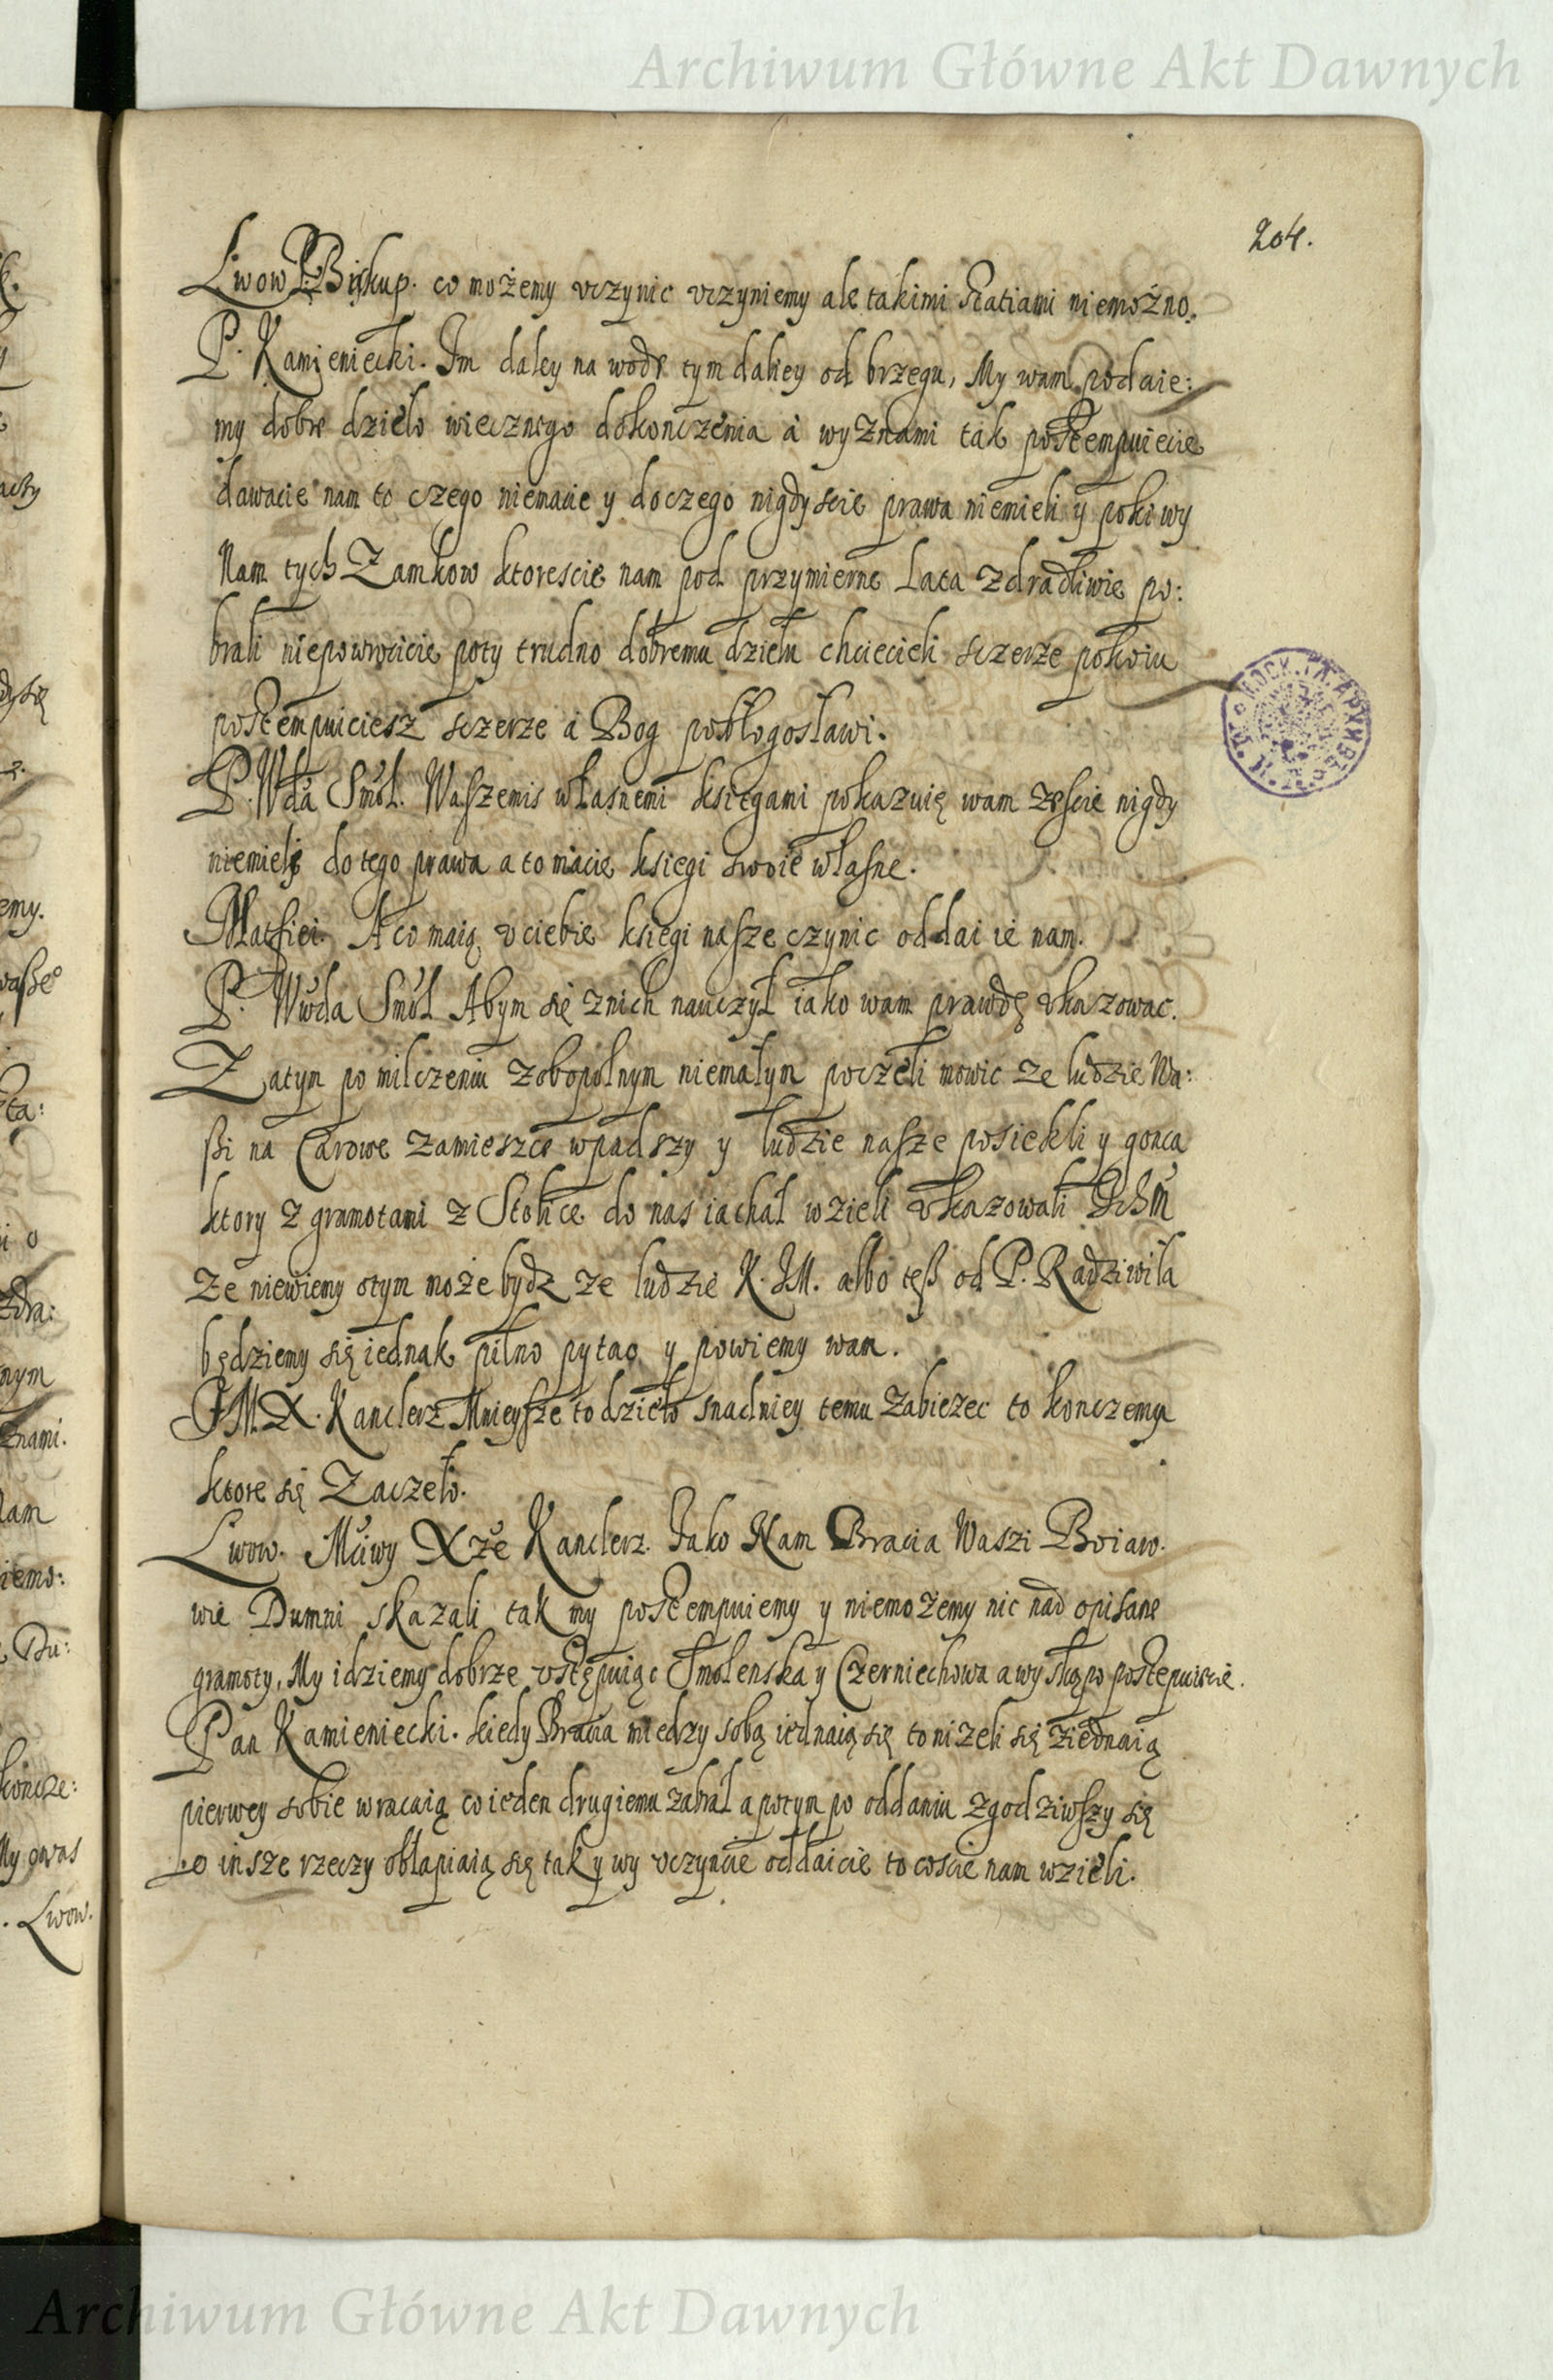 Archiwum Główne Akt Dawnych
204.
Lwow X Biskup. co możemy vczynic vczyniemy ale takimi Ratiami niemożno.
P. Kamieniecki. Im daley na wodę tym daliey od brzegu, My wam podaie:
my dobre dzieło wiecznego dokonczenia a wy znami tak postempuiecie
dawacie nam to czego niemacie y do czego nigdyscie prawa niemieli y poki wy
Nam tych Zamkow ktorescie nam pod przymierne Lata zdradliwie po:
brali niepowrocicie poty trudno dobremu dziełu chciecieli sczerze pokoiu
postempuiciesz sczerze a Bog pobłogosławi.
P. Wda Smol. Waszemis własnemi księgami pokazuię wam żescie nigdy
niemieli do tego prawa a to macie księgi swoie własne.
Matfiei. A co maią v ciebie księgi nasze czynic oddai ie nam.
P. Wwda Smol. Abym się znich nauczył iako wam prawdę vkazowac.
Zatym po milczeniu zobopolnym niemałym poczęli mowic ze ludzie Na:
szi na Carowe zamieszce wpadszy y ludzie nasze posiekli y gonca
ktory z gramotami z Stolice do nas iachał wzieli vkazowali
Ze niewiemy otym może bydz ze ludzie K. JM. albo tesz od P. Radziwiła
będziemy się iednak pilno pytac y powiemy wam.
JM. X. Kanclerz Mnieysze to dzieło snadniey temu zabiezec to konczemy
ktore się Zaczeło.
Lwow. Mciwy Xże Kanclerz. Jako Nam Bracia Waszi Boiaro.
wie Dumni skazali tak my postempuiemy y niemożemy nic nad opisane
gramoty, My idziemy dobrze vstępuiąc Smolenska y Czerniechowa a wy skąpo postepuiecie.
Pan Kamieniecki. kiedy Bracia miedzy sobą iednaią się to niżeli się ziednaią
pierwey sobie wracaią co ieden drugiemu zabrał a potym po oddaniu zgodziwszy się
o insze rzeczy obłapiaią się tak y wy vczyncie oddaicie to coscie nam wzieli.
Archiwum Główne Akt Dawnych